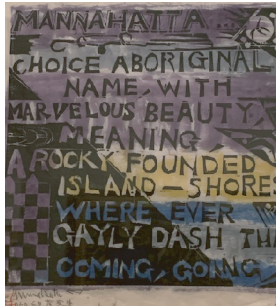 MANNAHATTA...
CHOICE ABORIGINAL
NAME, WITH
MARVELOUS BEAUTY,
MEANING,
A ROCKY FOUNDED
ISLAND — SHORES
WHERE EVER
GAYLY DASH TH
COMING, GOING